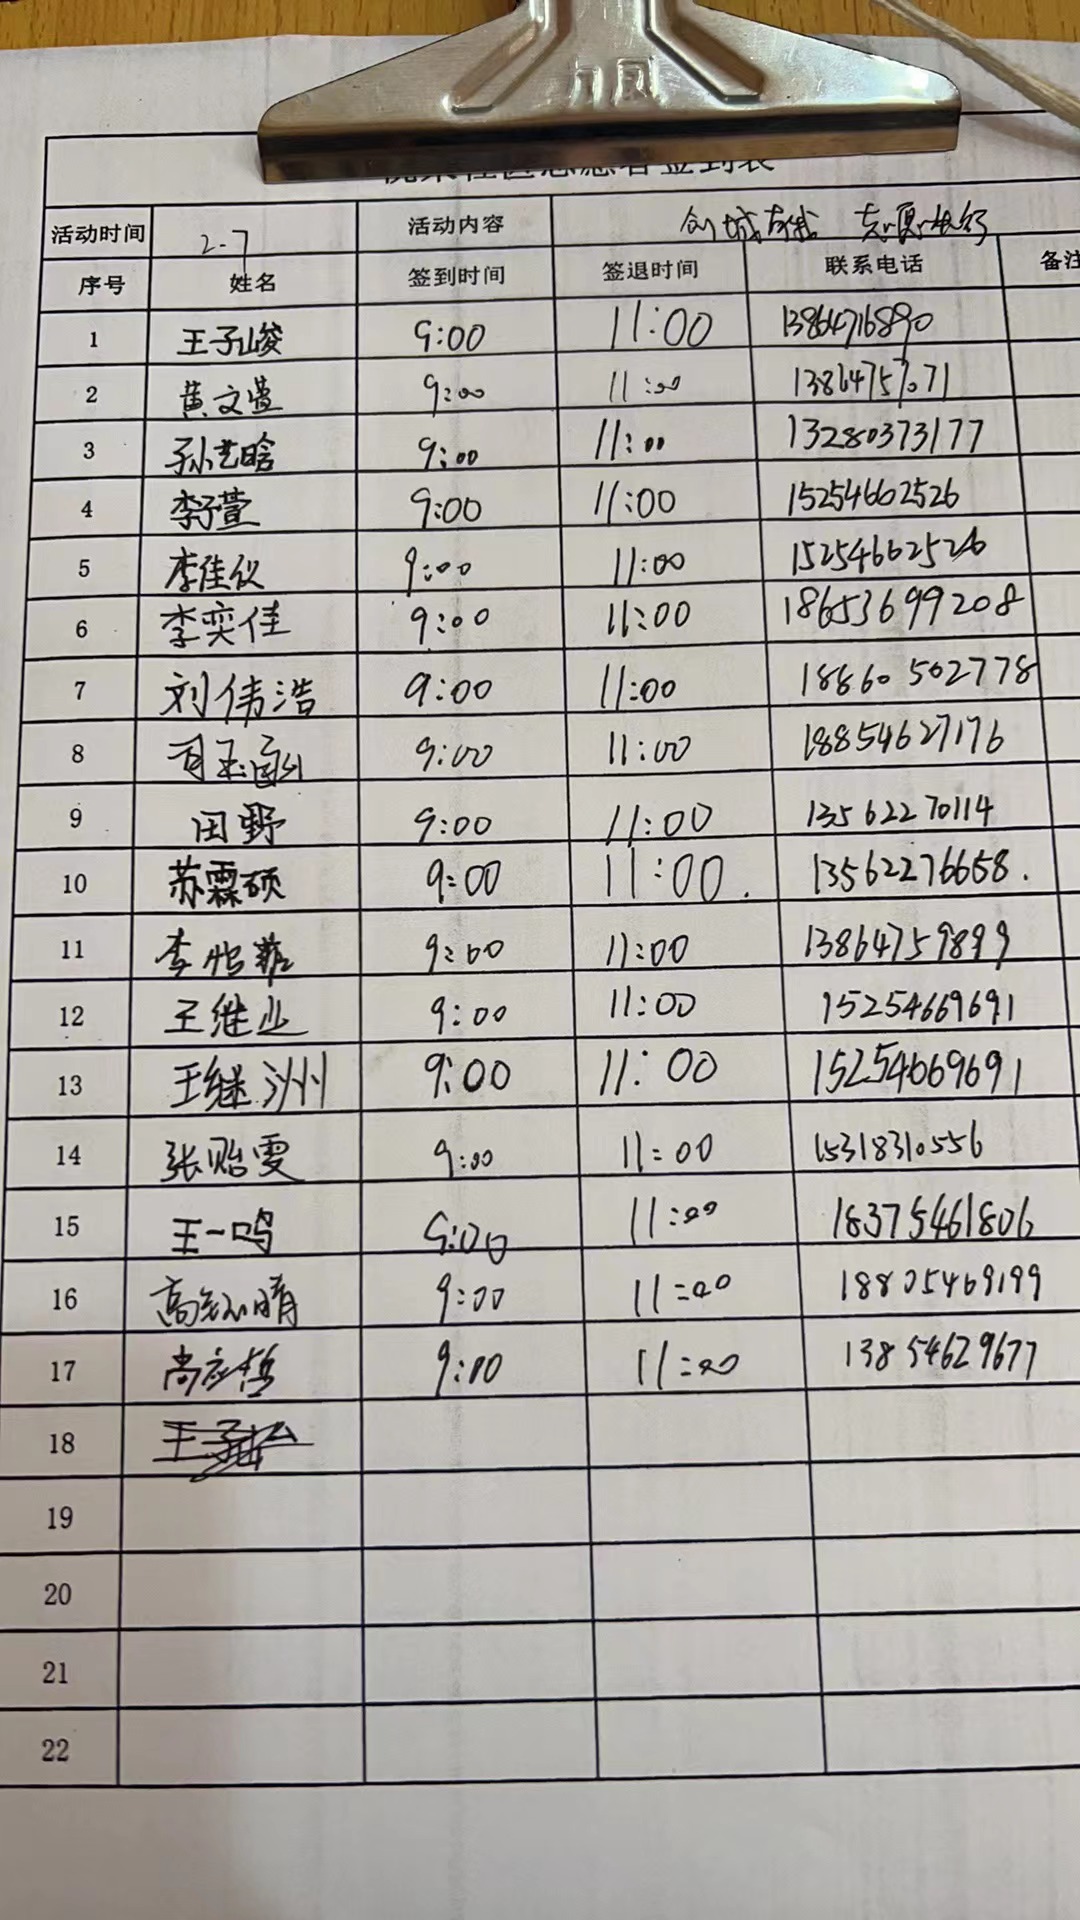 力风
社区志愿者签到表
活动时间 2-7 活动内容 创城有我 志愿先行
序号 姓名 签到时间 签退时间 联系电话 备注
1 王子峻 9:00 11:00 13864716890
2 黄文萱 9:00 11:00 13864757071
3 孙艺晗 9:00 11:00 13280373177
4 李子萱 9:00 11:00 15254662526
5 李佳仪 9:00 11:00 15254662526
6 李奕佳 9:00 11:00 18653699208
7 刘伟浩 9:00 11:00 18860502778
8 9:00 11:00 18854627176
9 田野 9:00 11:00 13562270114
10 苏霖硕 9:00 11:00. 13562276658.
11 9:00 11:00 13864759899
12 王继业 9:00 11:00 15254669691
13 王继洲 9:00 11:00 15254669691
14 张贻雯 9:00 11:00 15318310556
15 王一鸣 9:00 11:00 18375461806
16 9:00 11:00 18805469199
17 9:00 11:00 13854629677
18
19
20
21
22